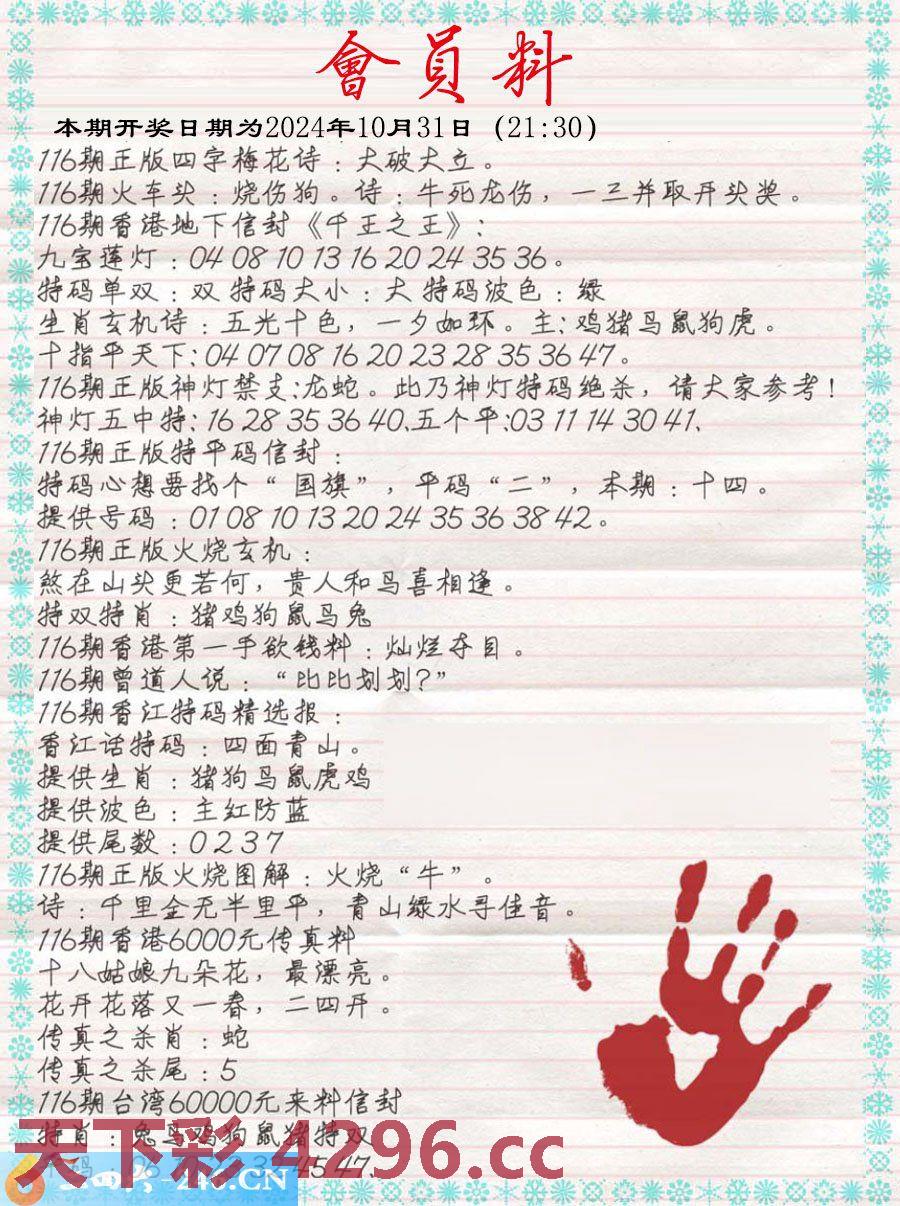 會員料
本期开奖日期为2024年10月31日（21:30）
116期正版四字梅花诗：大破大立。
116期火车头：烧伤狗。诗：牛死龙伤，一三并取开头奖。
116期香港地下信封《千王之王》：
九宝莲灯：04 08 10 13 16 20 24 35 36。
特码单双：双 特码大小：大 特码波色：绿
生肖玄机诗：五光十色，一夕如环。主：鸡猪马鼠狗虎。
十指平天下：04 07 08 16 20 23 28 35 36 47。
116期正版神灯禁支：龙蛇。此乃神灯特码绝杀，请大家参考！
神灯五中特：16 28 35 36 40、五个平：03 11 14 30 41、
116期正版特平码信封：
特码心想要找个“国旗”，平码“二”，本期：十四。
提供号码：01 08 10 13 20 24 35 36 38 42。
116期正版火烧玄机：
煞在山头更若何，贵人和马喜相逢。
特双特肖：猪鸡狗鼠马兔
116期香港第一手欲钱料：灿烂夺目。
116期曾道人说：“比比划划？”
116期香江特码精选报：
香江话特码：四面青山。
提供生肖：猪狗马鼠虎鸡
提供波色：主红防蓝
提供尾数：0 2 3 7
116期正版火烧图解：火烧“牛”。
诗：千里金无半里平，青山绿水寻佳音。
116期香港6000元传真料
十八姑娘九朵花，最漂亮。
花开花落又一春，二四开。
传真之杀肖：蛇
传真之杀尾：5
116期台湾60000元来料信封
特肖：兔马鸡狗鼠猪特双
45 47、
天下彩 4296.cc
246.CN